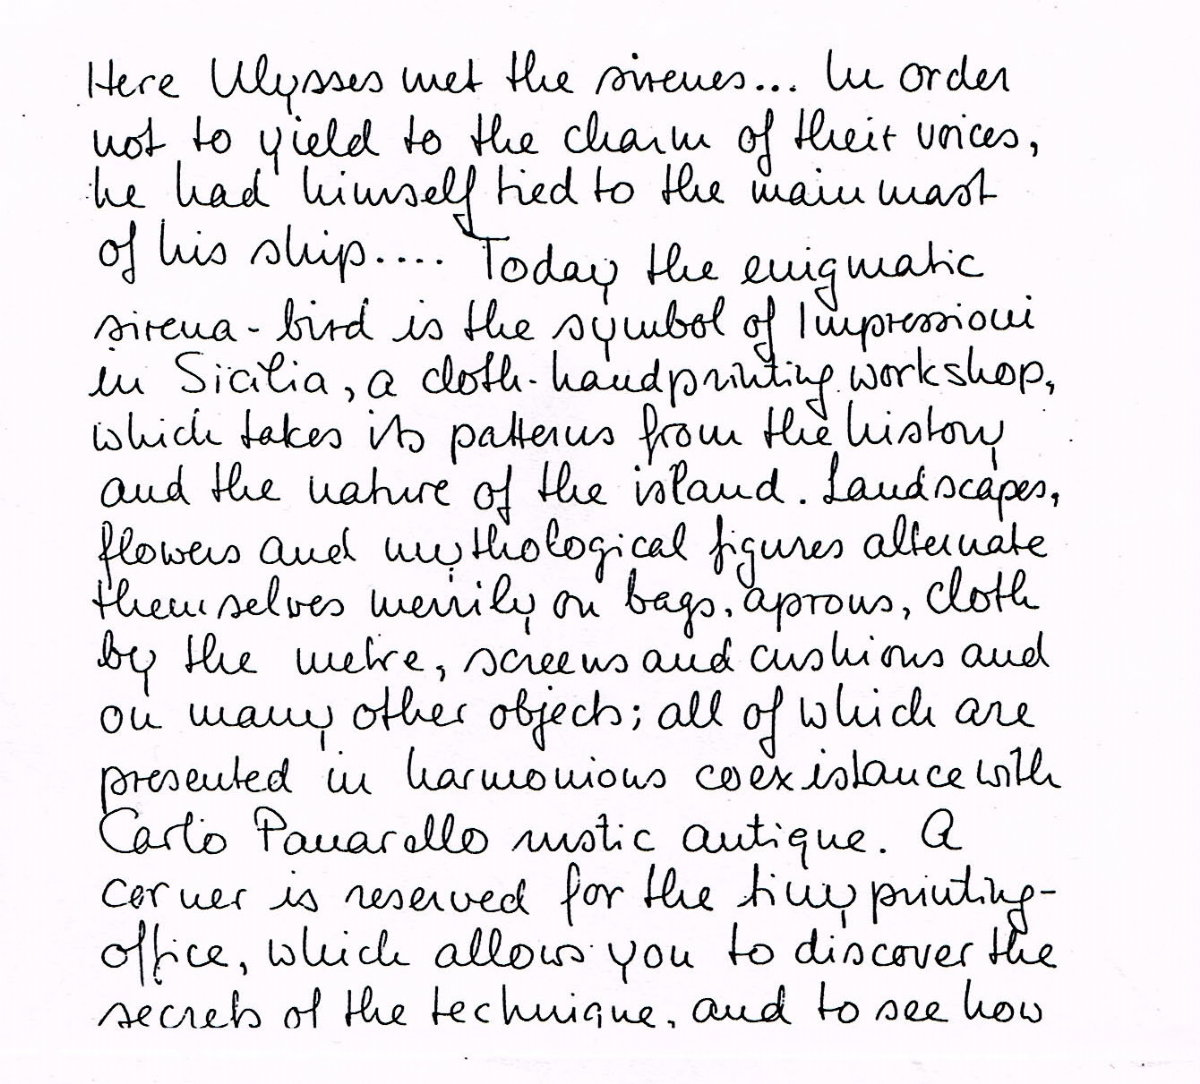 Here Ulysses met the sirenes... In order
not to yield to the charm of their voices,
he had himself tied to the main mast
of his ship.... Today the enigmatic
sirena-bird is the symbol of Impressioni
in Sicilia, a cloth-handprinting workshop,
which takes its patterns from the history
and the nature of the island. Landscapes,
flowers and mythological figures alternate
themselves merrily on bags, aprons, cloth
by the metre, screens and cushions and
on many other objects; all of which are
presented in harmonious coexistance with
Carlo Panarello rustic antique. A
corner is reserved for the tiny printing-
office, which allows you to discover the
secrets of the technique, and to see how